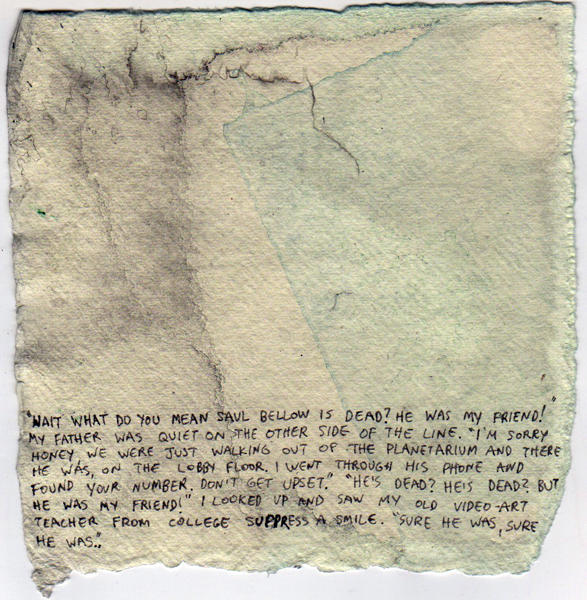 "WAIT WHAT DO YOU MEAN SAUL BELLOW IS DEAD? HE WAS MY FRIEND!"
MY FATHER WAS QUIET ON THE OTHER SIDE OF THE LINE. "I'M SORRY
HONEY WE WERE JUST WALKING OUT OF THE PLANETARIUM AND THERE
HE WAS, ON THE LOBBY FLOOR. I WENT THROUGH HIS PHONE AND
FOUND YOUR NUMBER. DON'T GET UPSET." "HE'S DEAD? HE IS DEAD? BUT
HE WAS MY FRIEND!" I LOOKED UP AND SAW MY OLD VIDEO-ART
TEACHER FROM COLLEGE SUPPRESS A SMILE. "SURE HE WAS, SURE
HE WAS."